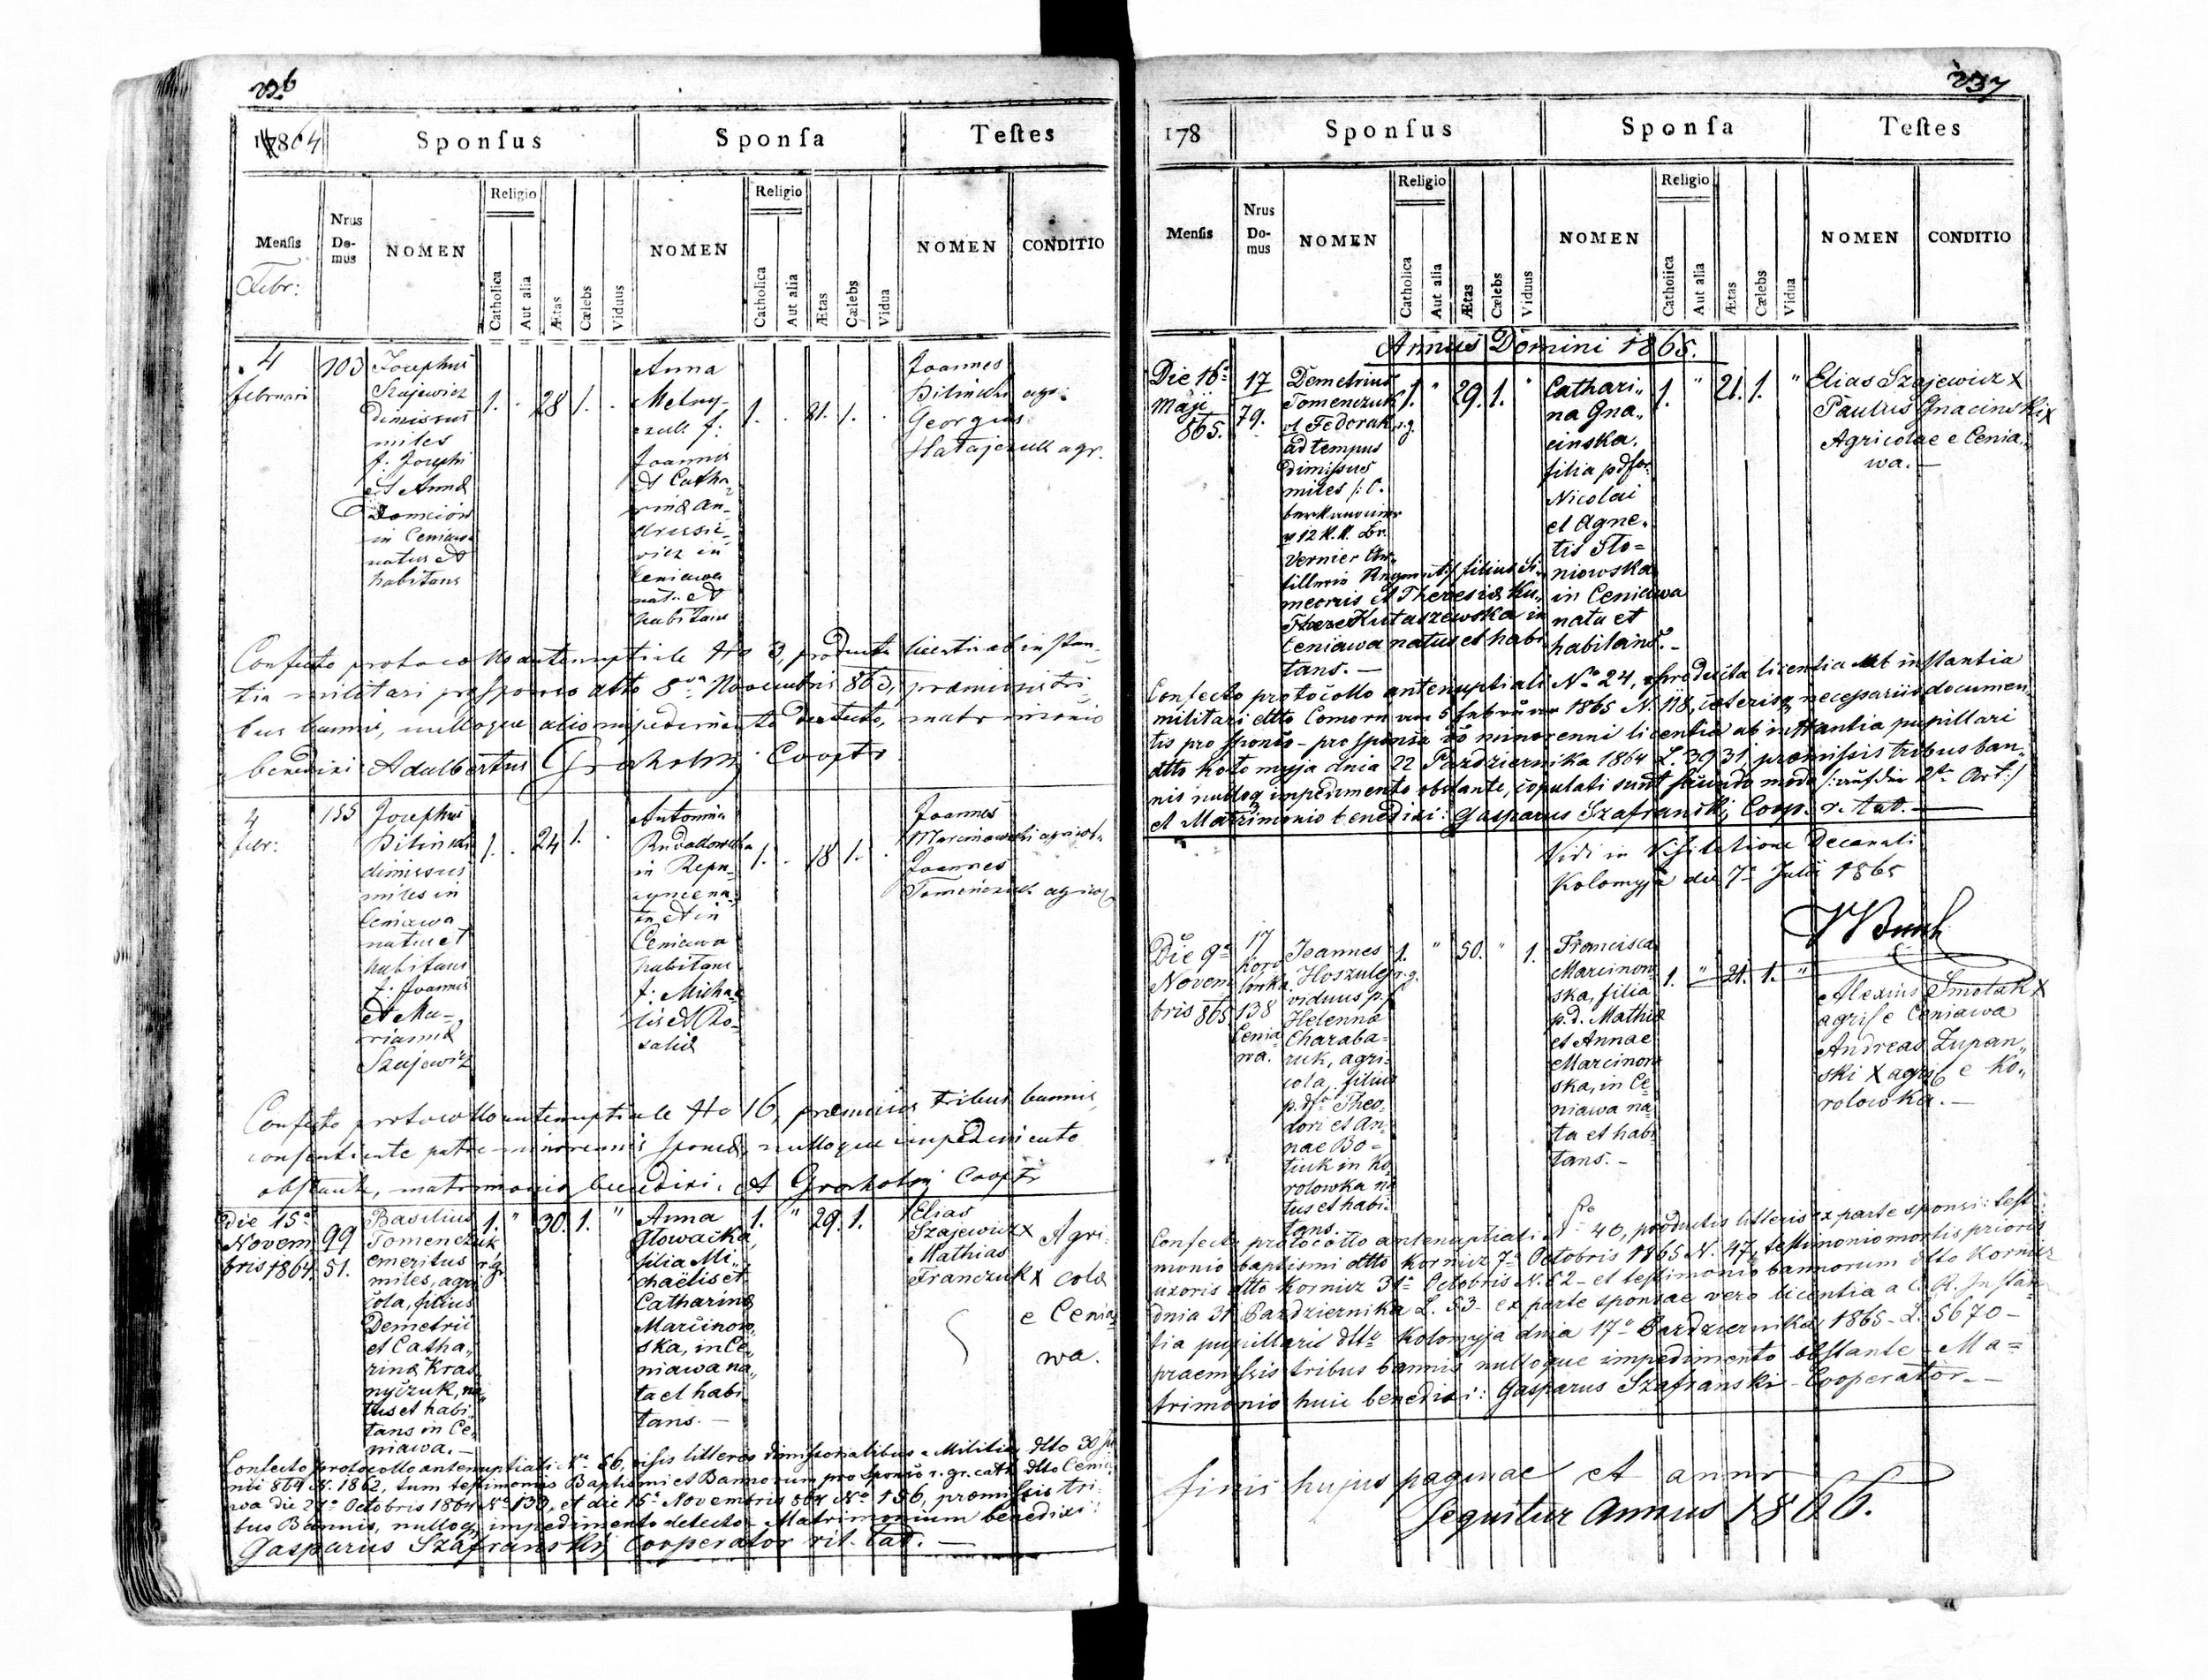 236
1864
Sponſus
Sponſa
Teſtes
Menſis
Febr:
Nrus
Do-
mus
NOMEN
Religio
Catholica
Aut alia
Ætas
Cælebs
Viduus
NOMEN
Religio
Catholica
Aut alia
Ætas
Cælebs
Vidua
NOMEN
CONDITIO
4
februari
103
Josephus
Szajewicz
dimissus
miles
f. Josephi
et Anna
in Ceniawa
natus et
habitans
1. . 28 1. .
Anna
Melny-
czuk f.
Joannis
et Catha-
rina An-
drusie-
wicz in
Ceniawa
nat. et
habitans
1. . 21. 1. .
Joannes
Bilinski agr.
Georgius
Hatajczuk agr.
Confecto protocollo antenuptiale No 3, producta licentia ab instan-
tia militari pro sponso dtto 8va Novembris 863, praemissis tri-
bus bannis, nulloque alio impedimento detecto, matrimonio
benedixi Adalbertus Grocholski Cooptr
4
febr:
155
Josephus
Bilinski
dimissus
miles in
Ceniawa
natus et
habitans
f. Joannis
et Ma-
rianna
Szajewicz
1. . 24 1. .
Antonina
in
et in
Ceniawa
habitans
f. Michae-
lis et Ro-
salia
1. . 18 1. .
Joannes
Marcinowski agricol.
Joannes
Tomenczuk agricol
Confecto protocollo antenuptiale No 16, praemissis tribus bannis,
consentiente patre minorennis sponsa, nulloque impedimento
obstante, matrimonio benedixi. A Grocholski Cooptr
Die 15a
Novem
bris 1864.
99
51.
Basilius
Tomenczuk
emeritus
miles, agri
cola, filius
Demetrii
et Catha„
rina Kras
nyczuk, na„
tus et habi„
tans in Ce„
niawa.—
1. r.g. " 30. 1. "
Anna
Głowacka,
filia Mi„
chaëlis et
Catharina
Marcinow„
ska, in Ce„
niawa na„
ta et habi
tans.—
1. " 29. 1.
Elias
Szajewicz x
Mathias
Franczuk x
Agri-
cola
e Cenia„
wa.
Confecto protocollo antenuptiali No 56, visis litteris dimissionalibus a Militia dtto 30 Ju
nii 864 N. 1862, tum testimoniis Baptismi et Bannorum pro sponso r. gr. cath. dtto Cenia
wa die 27a Octobris 1864 No 139, et die 15a Novembris 864 No 156, praemissis tri-
bus Bannis, nulloq. impedimento detecto Matrimonium benedixi:
Gasparus Szafranski Cooperator rit. lat.—
237
178
Sponſus
Sponſa
Teſtes
Menſis
Nrus
Do-
mus
NOMEN
Religio
Catholica
Aut alia
Ætas
Cælebs
Viduus
NOMEN
Religio
Catholiica
Aut alia
Ætas
Cælebs
Vidua
NOMEN
CONDITIO
Annus Domini 1865.
Die 16a
Maji
865.
17
79.
Demetrius
Tomenczuk
vl Fedorak
ad tempus
dimissus
miles /: O.
berkanonier
v 12 K. K. Br.
Vernier Ar-
tillerie Regiment :/ filius Si„
meonis et Theresia Ku„
Kutaszewska in
Ceniawa natus et habi
tans.—
1. r.g. " 29. 1. "
Cathari„
na Gna„
cinska,
filia pdfor.
Nicolai
et Agne„
tis Sto=
niowska
in Ceniawa
nata et
habitans.—
1. " 21. 1. "
Elias Szajewicz x
Paulus Gnacinski x
Agricolae e Cenia„
wa.—
Confecto protocollo antenuptiali No 24, producta licentia ab instantia
militari dtto Comorn am 5 Februar 1865 N. 118, ceterisq. necessariis documen„
tis pro sponso - pro sponsa minorenni licentia ab instantia pupillari
dtto Kołomyja dnia 22 Pazdziernika 1864 L. 3931 praemissis tribus ban„
nis nulloq. impedimento obstante, copulati sunt secundo modo /: auf die 2te Art :/
et Matrimonio benedixi: Gasparus Szafranski, Coop. r. lat.—
Vidi in Visitatione Decanali
Kolomyja die 7a Julii 1865
Die 9a
Novem
bris 865
17
Koro
lowka.
138
Cenia
wa.
Joannes
Hoszulej
viduus p.
Helenna
Charaba-
ruk, agri-
cola, filius
p. df. Theo-
dori et An-
nae Bo-
tiuk in Ko
rolowka na
tus et habi-
tans.
1. r.g. " 50. " 1.
Francisca
Marcinow-
ska, filia
p.d. Mathia
et Annae
Marcinow
ska, in Ce
niawa na-
ta et habi
tans.—
1. " 21. 1. "
Alexius Smolak x
agric e Ceniawa
Andreas Zupan„
ski x agric e Ko„
rolowka.—
Confecto protocollo antenuptiali No 40, productis litteris ex parte sponsi: testi-
monio baptismi dtto Kornicz 7a Octobris 1865 N. 47, testimonio mortis prioris
uxoris dtto Kornicz 31a Octobris N. 62 - et testimonio bannorum dtto Kornicz
dnia 31 Pazdziernika L. 53 - ex parte sponsae vero licentia a C. R. Instan
tia pupillaris dtto Kolomyja dnia 17a Pazdziernika 1865 - L. 5670 -
praemissis tribus bannis nulloque impedimento obstante - Ma=
trimonio huic benedixi: Gasparus Szafranski - Cooperator.—
finis hujus paginae et anni
Sequitur Annus 1866.